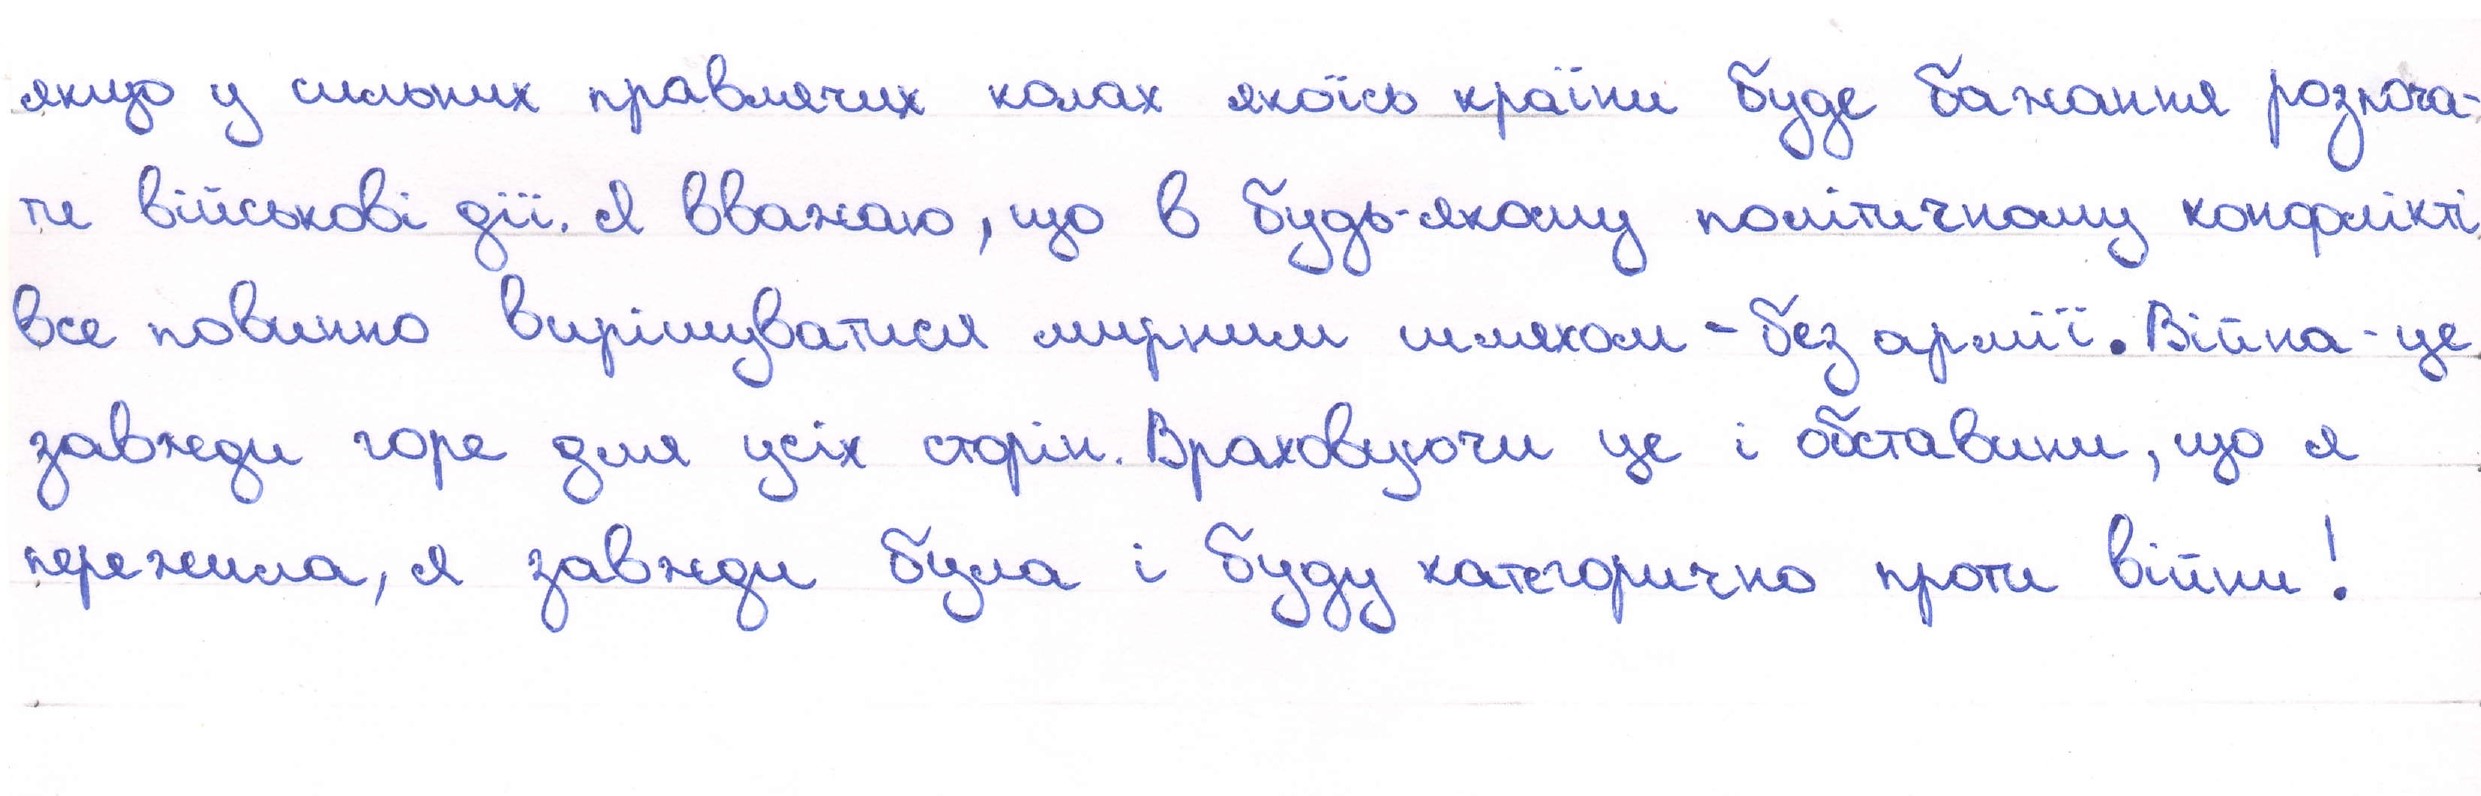 якщо у сильних правлячих колах якоїсь країни буде бажання розпоча-
ти військові дії. Я вважаю, що в будь-якому політичному конфлікті
все повинно вирішуватися мирним шляхом - без армії. Війна - це
завжди горе для усіх сторін. Враховуючи це і обставини, що я
пережила, я завжди була і буду категорично проти війни!